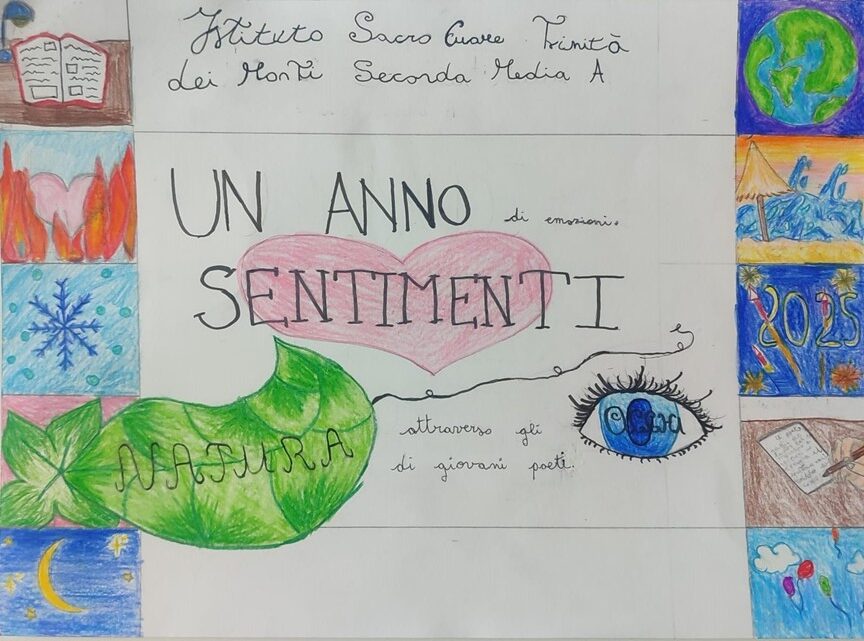 Istituto Sacro Cuore Trinità
dei Monti Seconda Media A
UN ANNO di emozioni.
SENTIMENTI
NATURA
attraverso gli occhi
di giovani poeti.
2025